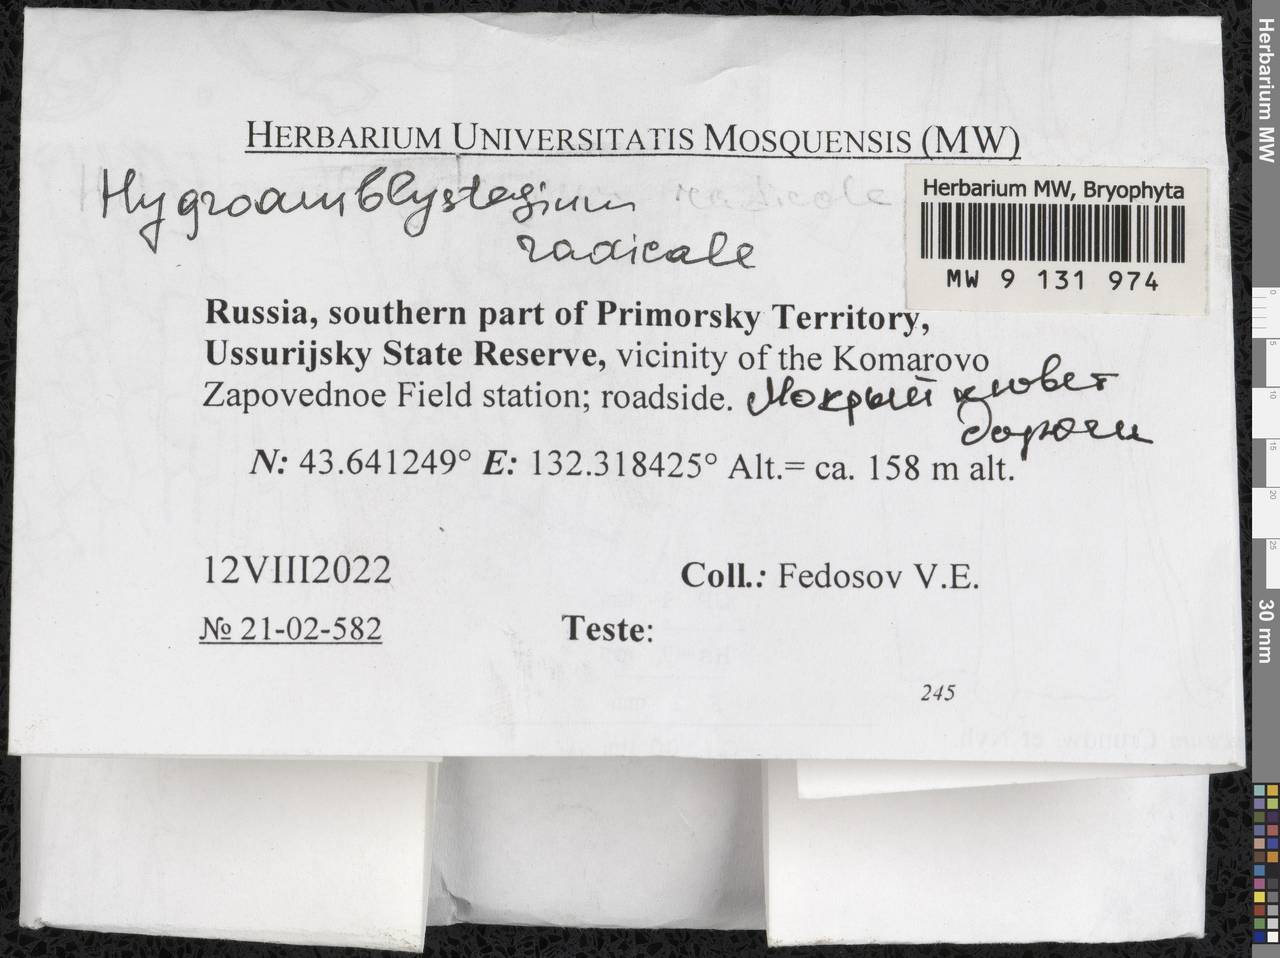 HERBARIUM UNIVERSITATIS MOSQUENSIS (MW)
Hygroamblystegium
radicale
Herbarium MW, Bryophyta
MW 9 131 974
Russia, southern part of Primorsky Territory,
Ussurijsky State Reserve, vicinity of the Komarovo
Zapovednoe Field station; roadside. Мокрый кювет
дороги
N: 43.641249° E: 132.318425° Alt.= ca. 158 m alt.
12VIII2022
Coll.: Fedosov V.E.
№ 21-02-582
Teste:
245
Herbarium MW
0
5
10
15
20
25
30 mm